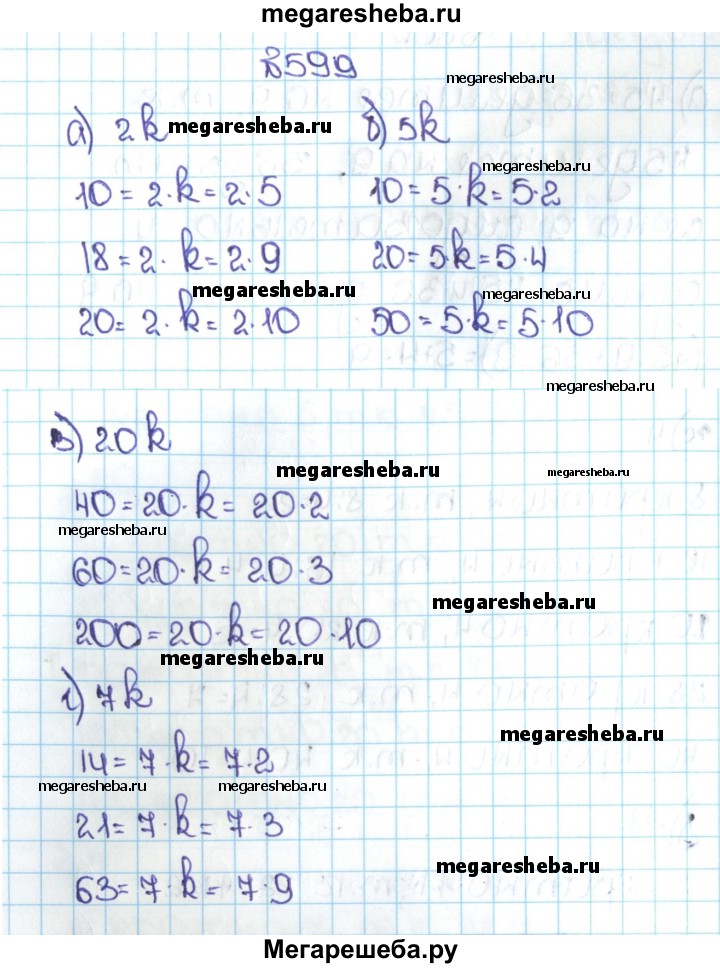 megaresheba.ru
№599
megaresheba.ru
а) 2k megaresheba.ru б) 5k
megaresheba.ru
10 = 2·k = 2·5 10 = 5·k = 5·2
18 = 2·k = 2·9 20 = 5·k = 5·4
megaresheba.ru megaresheba.ru
20 = 2·k = 2·10 50 = 5·k = 5·10
megaresheba.ru
в) 20k
megaresheba.ru megaresheba.ru
40 = 20·k = 20·2
megaresheba.ru
60 = 20·k = 20·3
megaresheba.ru
200 = 20·k = 20·10
megaresheba.ru
г) 7k
megaresheba.ru
14 = 7·k = 7·2
megaresheba.ru megaresheba.ru
21 = 7·k = 7·3
megaresheba.ru
63 = 7·k = 7·9
Мегарешеба.ру